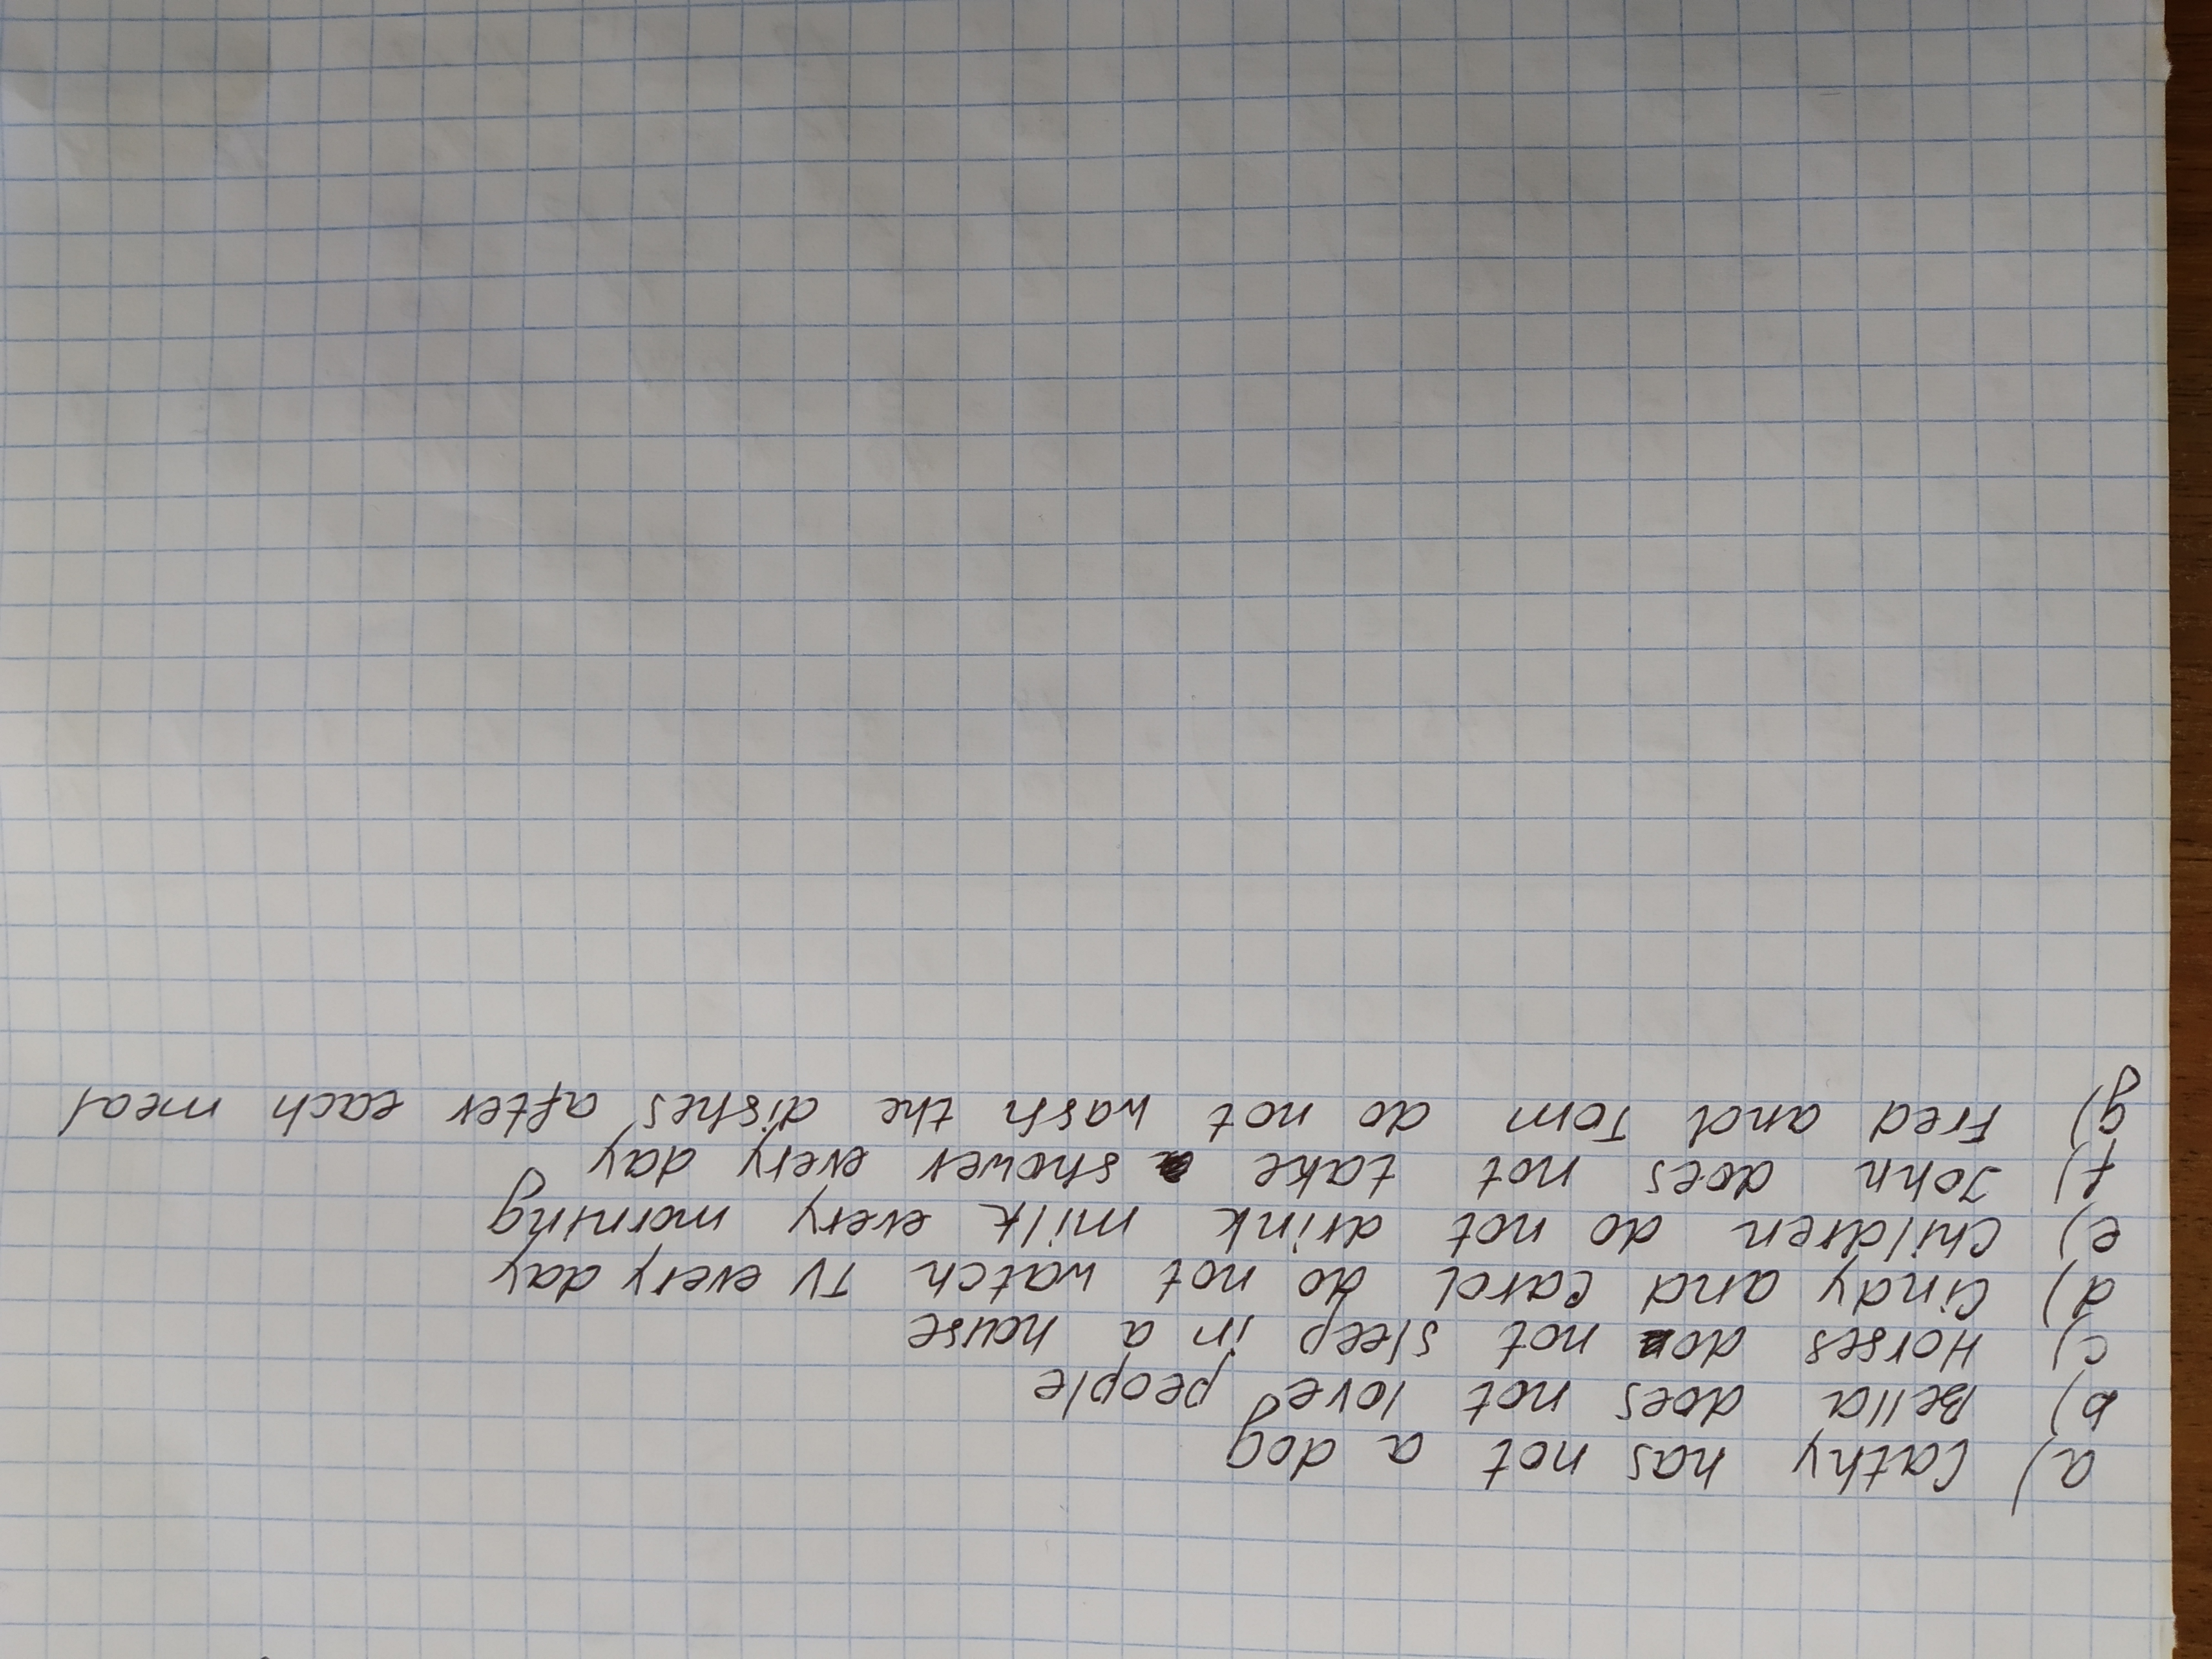 a) Cathy has not a dog
b) Bella does not love people
c) Horses do not sleep in a house
d) Cindy and Carol do not watch TV every day
e) Children do not drink milk every morning
f) John does not take a shower every day
g) Fred and Tom do not wash the dishes after each meal